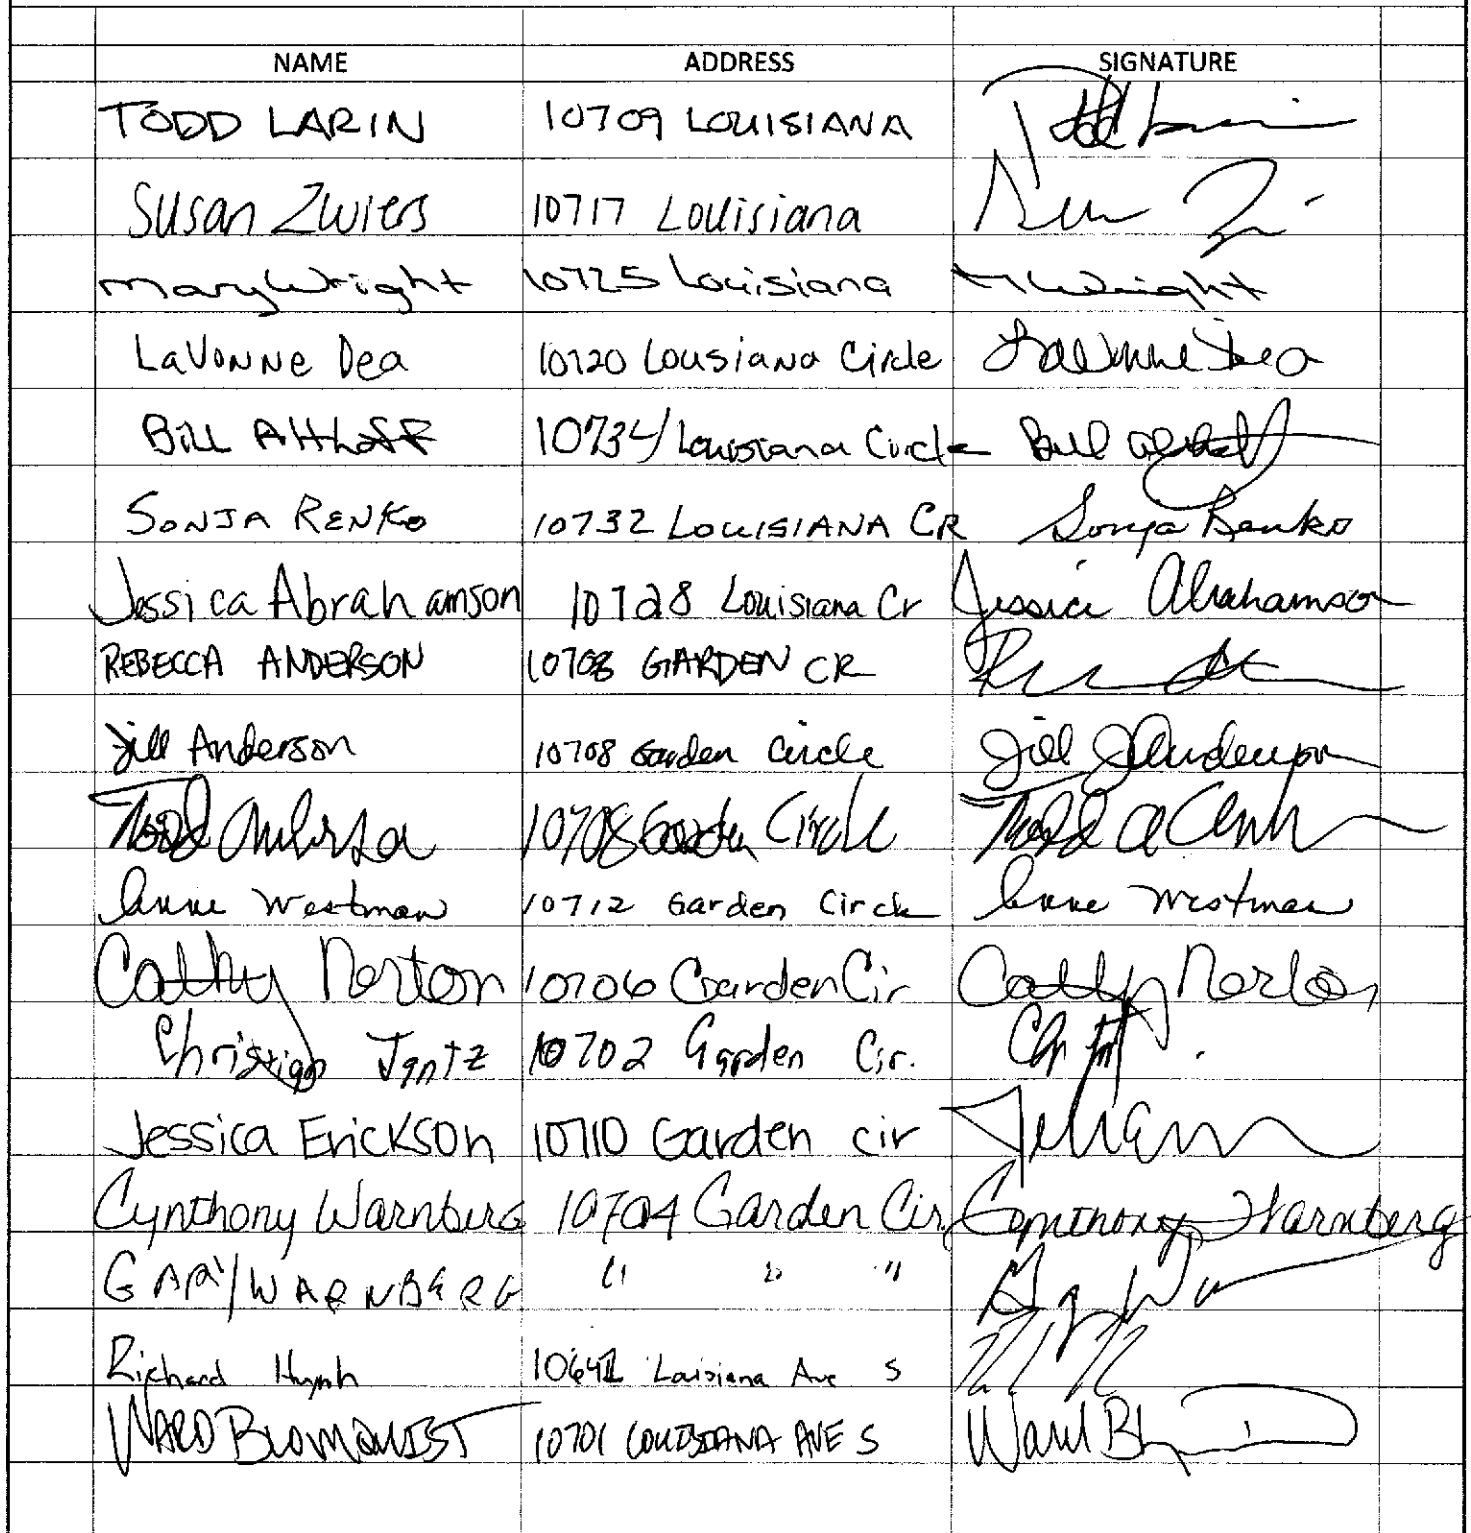 NAME ADDRESS SIGNATURE
TODD LARIN 10709 LOUISIANA Todd Larin
Susan Zwiers 10717 Louisiana
Mary Wright 10725 Louisiana M Wright
LaVonne Dea 10720 Lousiana Circle LaVonne Dea
Bill Althoff 10734 Louisiana Circle Bill Althoff
SONJA RENKO 10732 LOUISIANA CR Sonja Renko
Jessica Abrahamson 10728 Louisiana Cr Jessica Abrahamson
REBECCA ANDERSON 10708 GARDEN CR
Jill Anderson 10708 Garden Circle Jill J Anderson
Todd 10708 Garden Circle Todd A
Anne Westman 10712 Garden Circle Anne Westman
Cathy Norton 10706 Garden Cir Cathy Norton
Christian Jantz 10702 Garden Cir.
Jessica Erickson 10710 Garden cir
Cynthony Warnberg 10704 Garden Cir Cynthony Warnberg
GARY WARNBERG " " "
Richard Huynh 10641 Louisiana Ave S
WARD BLOMQUIST 10701 LOUISIANA AVE S Ward